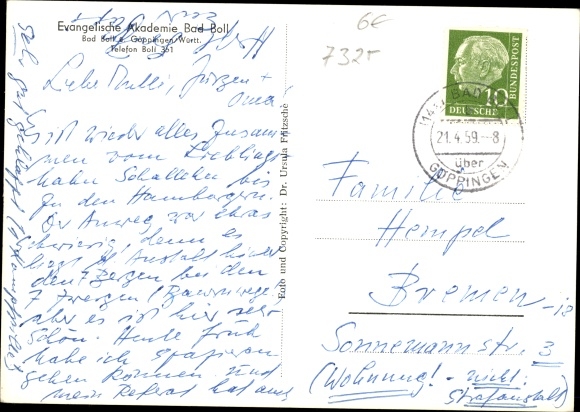 Evangelische Akademie Bad Boll
Bad Boll ü. Göppingen/Württ.
Telefon Boll 351
Liebe Mutti, Jürgen +
Oma!
Es ist wieder alles zusam
men vom Lieblings
hahn Schallehn bis
zu den Hamburgern.
Der Anweg war etwas
schwierig, denn es
liegt d. Anstalt hinter
den 7 Bergen bei den
7 Zwergen
aber es ist hier sehr
schön. Heute früh
habe ich spazieren
gehen können. Und
mein Referat hat auch
sehr gut geklappt
Foto und Copyright: Dr. Ursula Fritzsche
6€
7325
DEUTSCHE
BUNDESPOST
10
BAD
21.4.59.-8
über
GÖPPINGEN
Familie
Hempel
Bremen
Sonnemannstr. 3
(Wohnung! - nicht
Strafanstalt)